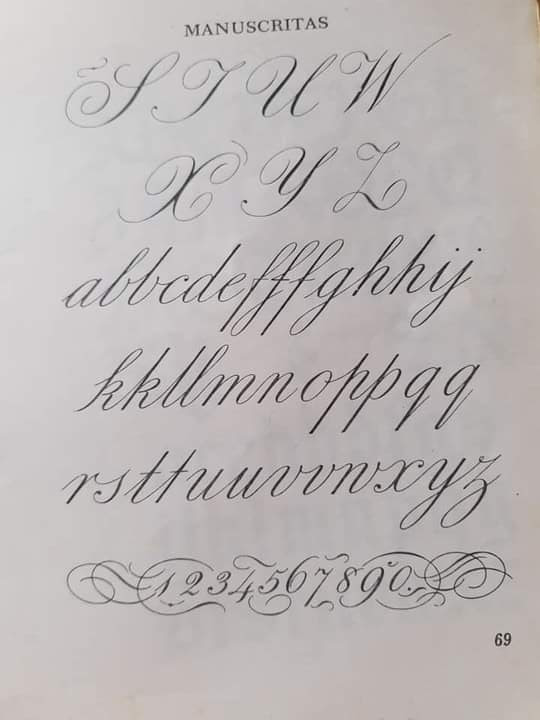 MANUSCRITAS
S T U W
X Y Z
abbcdeffffghhij
kkllmnoppqq
rsttuuvvwxyz
1234567890.
69